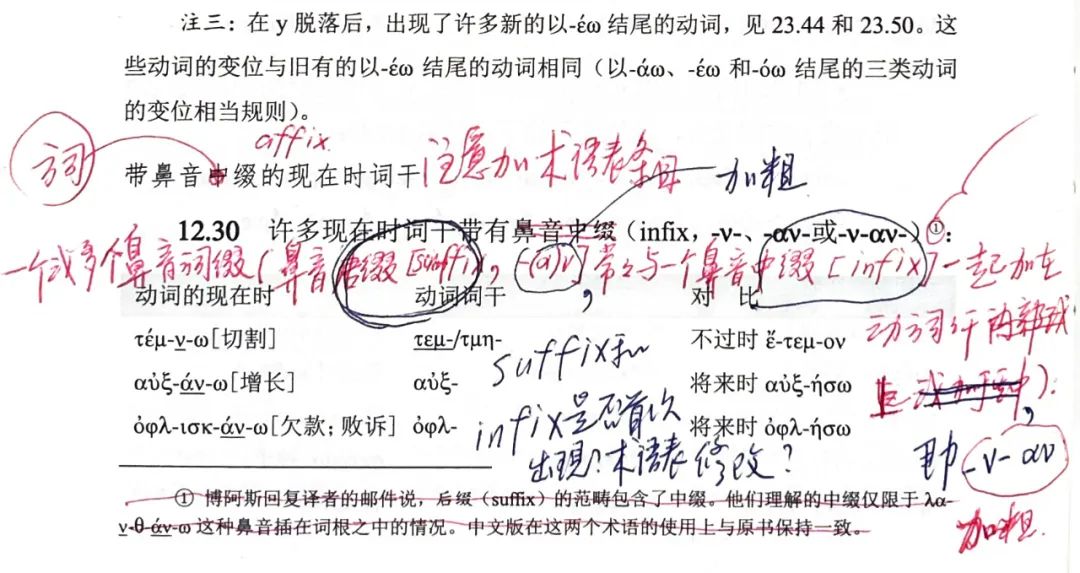 注三：在 y 脱落后，出现了许多新的以-έω 结尾的动词，见 23.44 和 23.50。这
些动词的变位与旧有的以-έω 结尾的动词相同（以-άω、-έω 和-όω 结尾的三类动词
的变位相当规则）。
affix
方词
带鼻音中缀的现在时词干
注意加术语表条目
加粗
12.30 许多现在时词干带有鼻音中缀（infix，-ν-、-αν-或-ν-αν-）①：
一个或多个鼻音词缀（鼻音后缀[suffix，-(α)ν]常常与一个鼻音中缀[infix]一起加在
动词词干内部或
动词的现在时 动词词干 对 比
τέμ-ν-ω[切割] τεμ-/τμη- 不过时 ἔ-τεμ-ον
αὐξ-άν-ω[增长] αὐξ- 将来时 αὐξ-ήσω
ὀφλ-ισκ-άν-ω[欠款；败诉] ὀφλ- 将来时 ὀφλ-ήσω
suffix和
infix是否首次
出现？术语表修改？
即 -ν- αν
加粗
① 博阿斯回复译者的邮件说，后缀（suffix）的范畴包含了中缀。他们理解的中缀仅限于 λα-
ν-θ-άν-ω 这种鼻音插在词根之中的情况。中文版在这两个术语的使用上与原书保持一致。